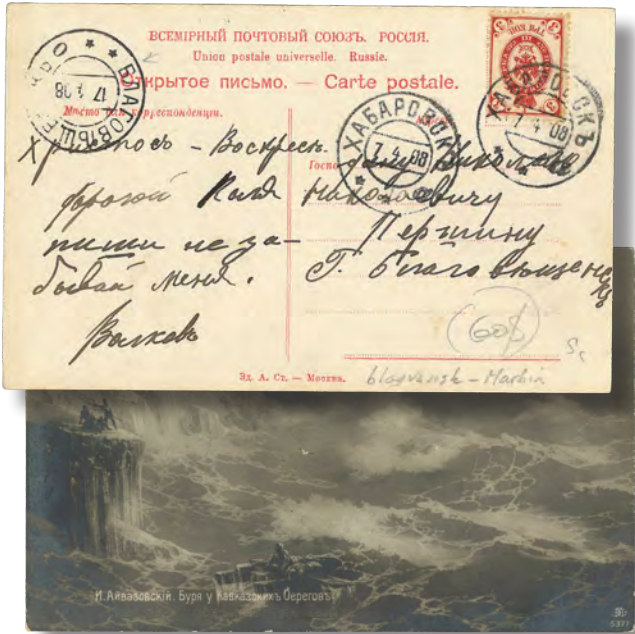 ВСЕМІРНЫЙ ПОЧТОВЫЙ СОЮЗЪ. РОССІЯ.
Union postale universelle. Russie.
Открытое письмо. — Carte postale.
Мѣсто для корреспонденціи.
БЛАГОВѢЩЕ
17 08
ХАБАРОВСКЪ
7 4 08
ХАБАРОВСКЪ
7 4 08
Христосъ - Воскресъ.
дорогой Коля
пиши не за-
бывай меня.
Волковъ
Госпо
дину Николаю
Николаевичу
Першину
Г. Благовѣщенскъ
608
Эд. А. Ст. — Москва.
blagvensk - Markin
И. Айвазовскій. Буря у Кавказскихъ береговъ
5377